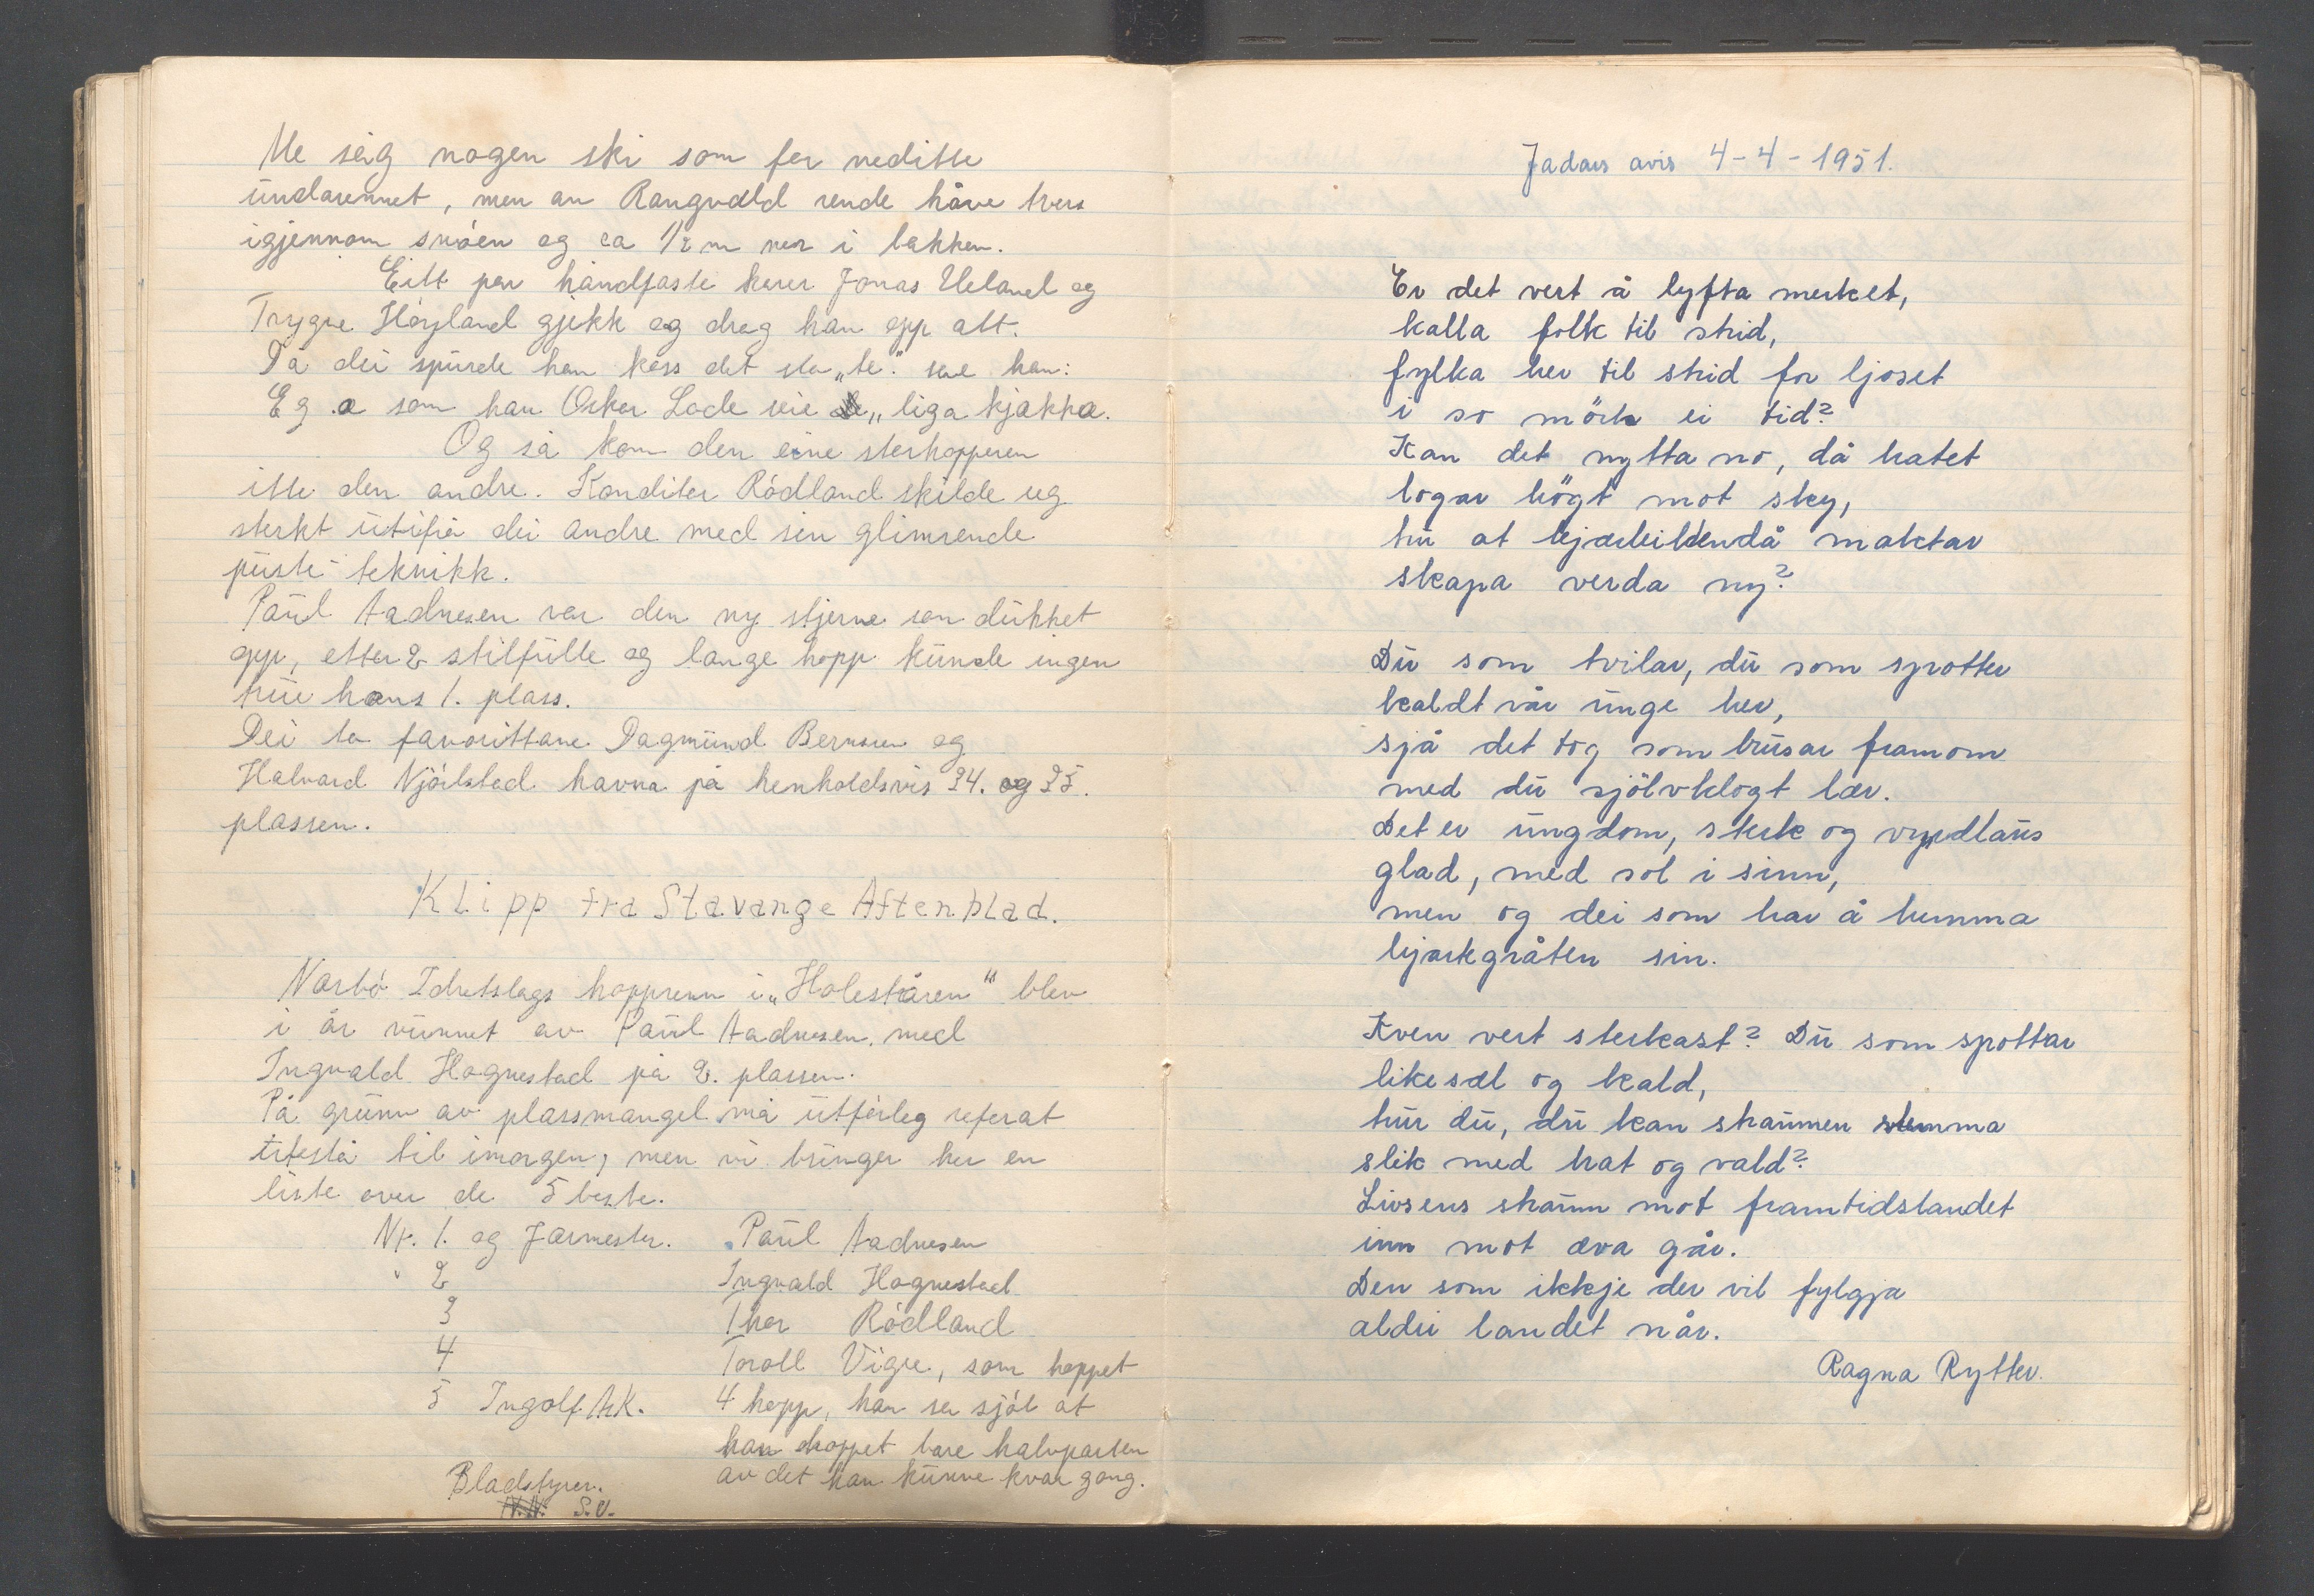 Me såg nogen ski som fer neditte
undarennet, men an Rangvald rende håve tvers
igjennom snóen og ca 1/2 m ner i bakken.
Eitt par håndfaste karer Jonas Ueland og
Trygve Höyland gjekk og drog han opp att.
Då dei spurde han koss det sto „te". sae han:
Eg .a som han Oskar Lode seie „liga kjakka.
Og så kom den eine sterhopperen
itte den andre. Konditer Rödland skilde seg
sterkt utifrå dei andre med sin glimrende
püste teknikk.
Paul Aadnesen var den ny stjerne som dukket
opp, etter 2 stilfulle og lange hopp kunde ingen
true hans 1. plass.
Dei to favorittane Dagmund Bernsen og
Halvard Njölstad havna på henholdsvis 24. og 25.
plassen.
Klipp fra Stavange Aftenblad.
Nærbö Idretslags hopprenn i „Holeståren" blev
i år vunnet av Paul Aadnesen, med
Ingvald Hognestad på 2. plassen.
På grunn av plassmangel må utförleg referat
utestå til imorgen, men vi bringer her en
liste over de 5 beste.
Nr. 1. og Jærmester. Paul Aadnesen
" 2 Ingvald Hognestad
3 Thor Rödland
4 Toroll Vigre, som hoppet
5 Ingolf. AK. 4 hopp, han ser sjól at
han hoppet bare halvparten
av det han kunne kvar gong.
Bladstyrer.
N.N. S.V.
Jadars avis 4-4-1951.
Er det vert å lyfta merket,
kalla folk til strid,
fylka her til strid for ljoset
i so mörk ei tid?
Kan det nytta no, då hatet
logar högt mot sky,
tru at kjærleiken då maktar
skapa verda ny?
Du som tvilar, du som spotter
kaldt vår unge her,
sjå det tog som brusar framom
med du sjölvklogt lær.
Det er ungdom, sterk og vyrdlaus
glad, med sol i sinn,
men og dei som har å hemma
hjartegråten sin.
Kven vert sterkast? Du som spottar
likesæl og kald,
trur du, du kan straumen stemma
slik med hat og vald?
Livsens straum mot framtidslandet
inn mot æva går.
Den som ikkje der vil fylgja
aldri landet når.
Ragna Rytter.